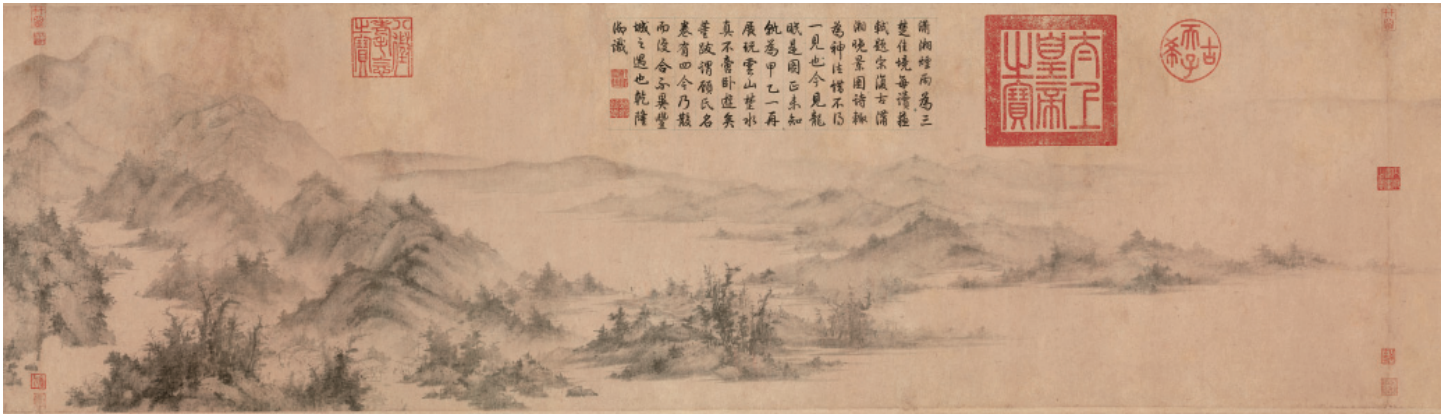 古希天子
太上皇帝之寶
瀟湘煙雨為三
楚佳境每讀蘇
軾題宋復古瀟
湘晚景圖詩輒
為神往惜不得
一見也今見龍
眠是圖正未知
孰為甲乙一再
展玩雲山楚水
真不啻卧遊矣
董跋謂顧氏名
卷有四今乃散
而復合不異豐
城之遇也乾隆
御識
八徵耄念之寶